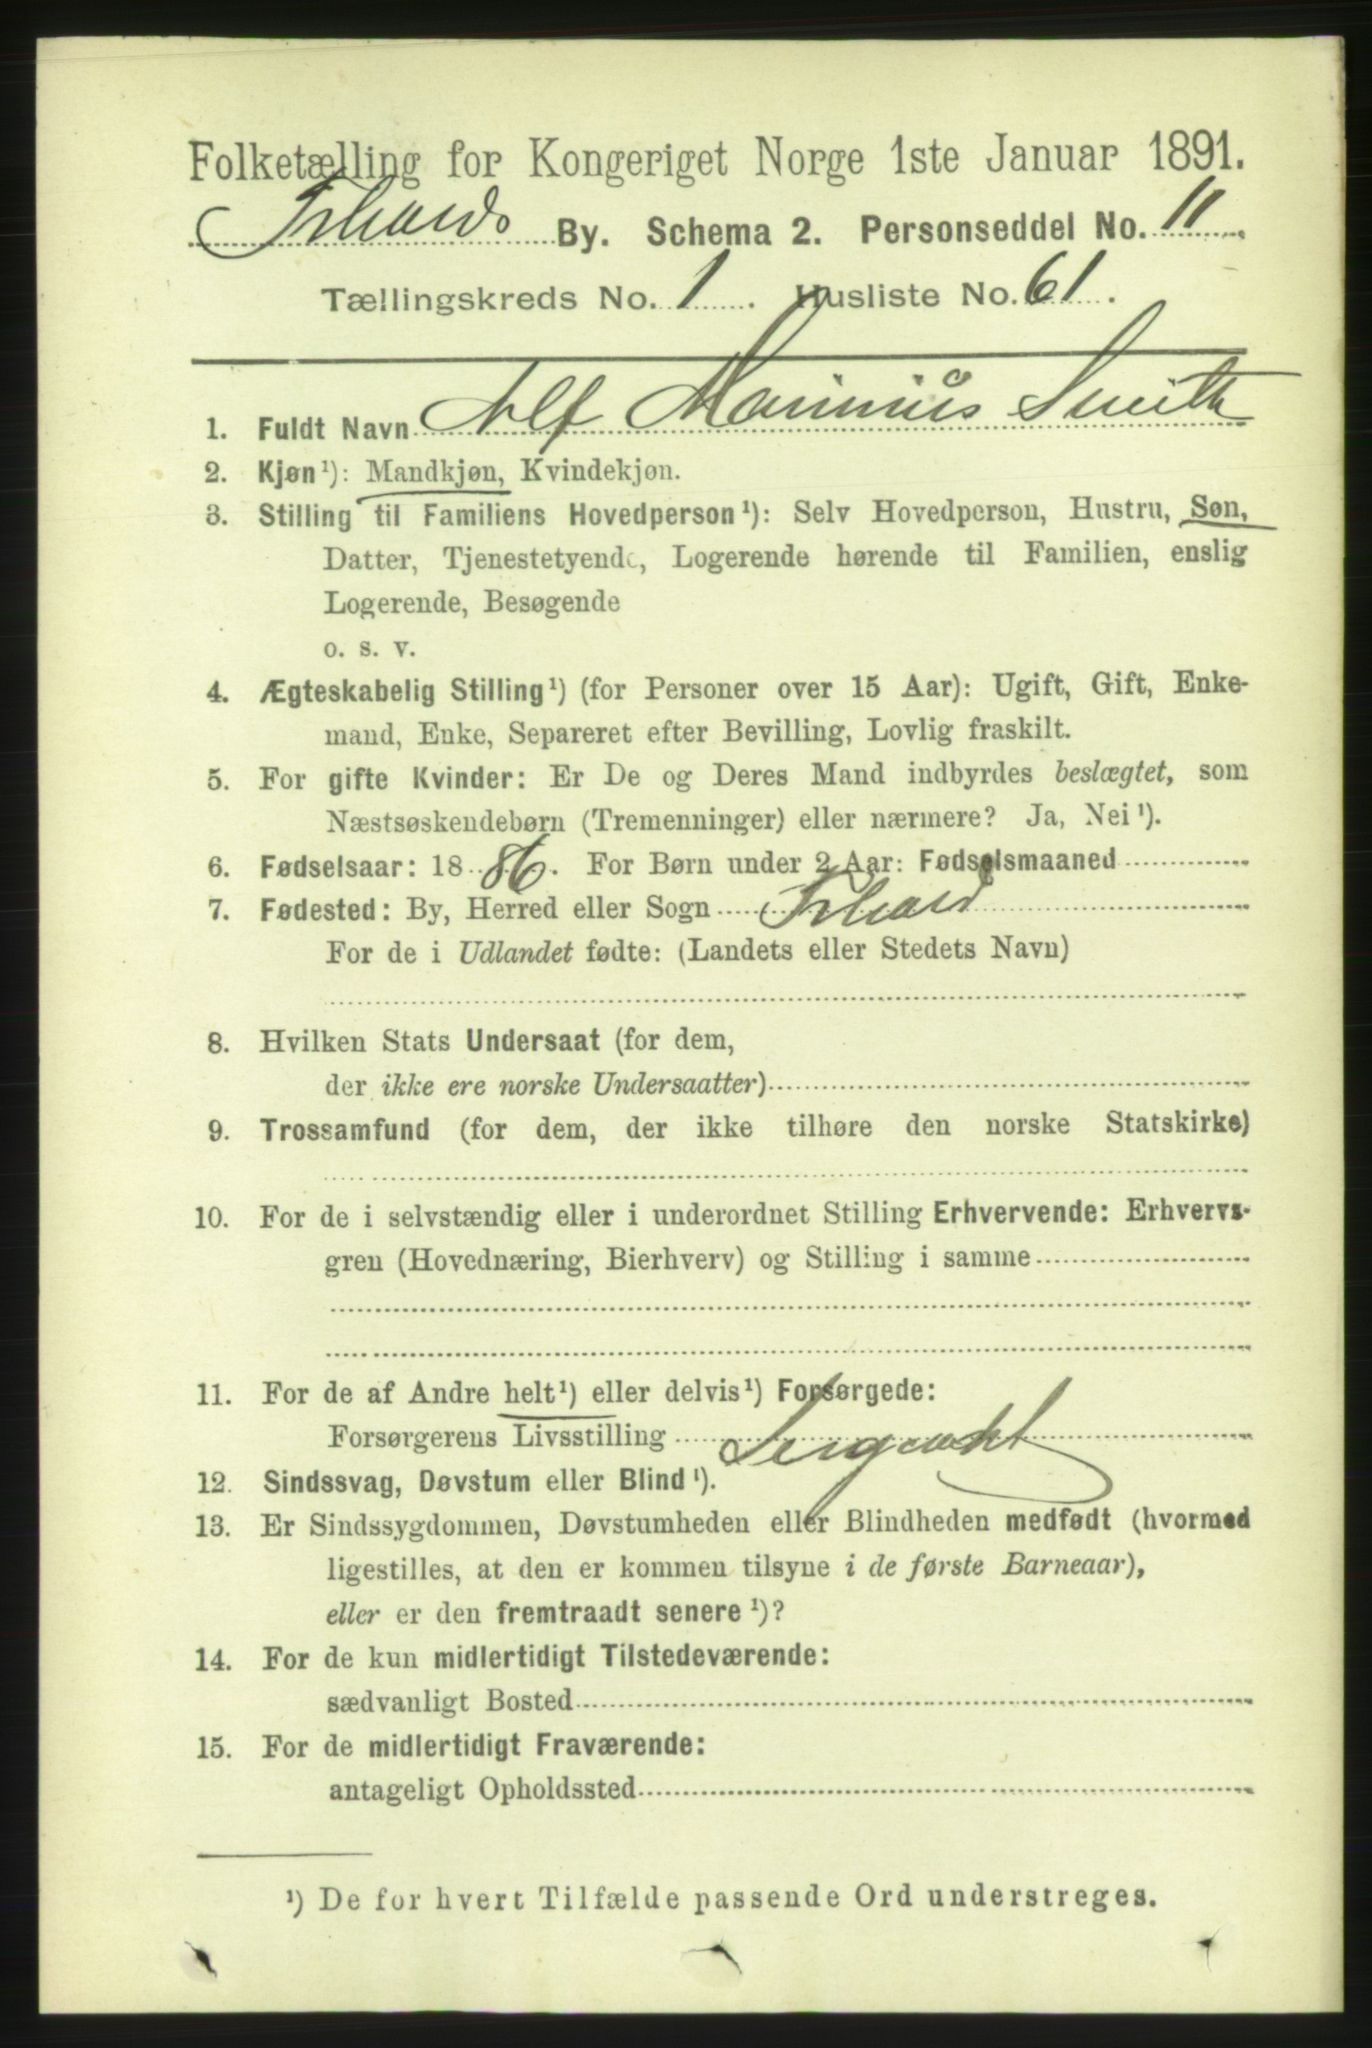 Folketælling for Kongeriget Norge 1ste Januar 1891.
Frhalds By. Schema 2. Personseddel No. 11
Tællingskreds No. 1. Husliste No. 61.
1. Fuldt Navn Alf Marinius Smith
2. Kjøn¹): Mandkjøn, Kvindekjøn.
3. Stilling til Familiens Hovedperson¹): Selv Hovedperson, Hustru, Søn,
Datter, Tjenestetyende, Logerende hørende til Familien, enslig
Logerende, Besøgende
o. s. v.
4. Ægteskabelig Stilling¹) (for Personer over 15 Aar): Ugift, Gift, Enke-
mand, Enke, Separeret efter Bevilling, Lovlig fraskilt.
5. For gifte Kvinder: Er De og Deres Mand indbyrdes beslægtet, som
Næstsøskendebørn (Tremenninger) eller nærmere? Ja, Nei¹).
6. Fødselsaar: 1886. For Børn under 2 Aar: Fødselsmaaned
7. Fødested: By, Herred eller Sogn Frhald
For de i Udlandet fødte: (Landets eller Stedets Navn)
8. Hvilken Stats Undersaat (for dem,
der ikke ere norske Undersaatter)
9. Trossamfund (for dem, der ikke tilhøre den norske Statskirke)
10. For de i selvstændig eller i underordnet Stilling Erhvervende: Erhvervs-
gren (Hovednæring, Bierhverv) og Stilling i samme
11. For de af Andre helt¹) eller delvis¹) Forsørgede:
Forsørgerens Livsstilling Sergeant
12. Sindssvag, Døvstum eller Blind¹).
13. Er Sindssygdommen, Døvstumheden eller Blindheden medfødt (hvormed
ligestilles, at den er kommen tilsyne i de første Barneaar),
eller er den fremtraadt senere¹)?
14. For de kun midlertidigt Tilstedeværende:
sædvanligt Bosted
15. For de midlertidigt Fraværende:
antageligt Opholdssted
¹) De for hvert Tilfælde passende Ord understreges.